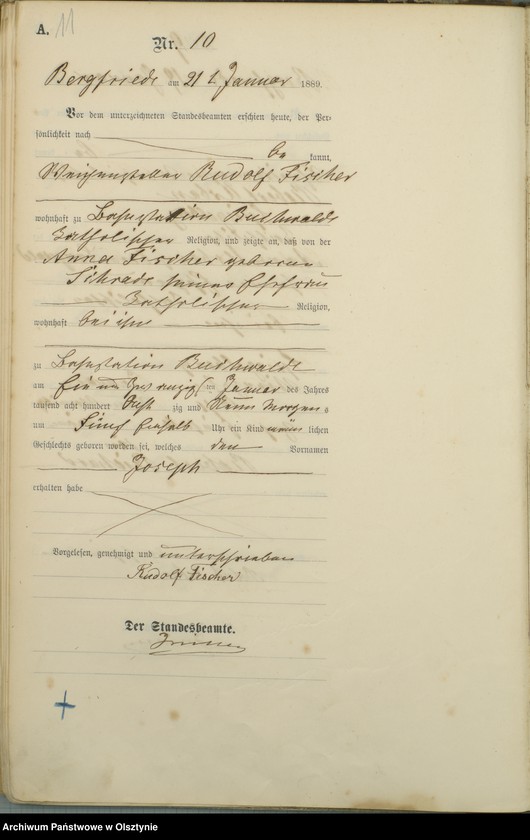 A. 11
Nr. 10
Bergfriede am 21 t. Januar 1889.
Vor dem unterzeichneten Standesbeamten erschien heute, der Per-
sönlichkeit nach
be kannt,
Weichensteller Rudolf Fischer
wohnhaft zu Bahnstation Buchwalde
katholischer Religion, und zeigte an, daß von der
Anna Fischer geborene
Schrade seiner Ehefrau
katholischer Religion,
wohnhaft bei ihm
zu Bahnstation Buchwalde
am Ein und zwanzig ten Januar des Jahres
tausend acht hundert Acht zig und Neun Morgens
um Fünf einhalb Uhr ein Kind männ lichen
Geschlechts geboren worden sei, welches den Vornamen
Joseph
erhalten habe
Vorgelesen, genehmigt und unterschrieben
Rudolf Fischer
Der Standesbeamte.
Archiwum Państwowe w Olsztynie